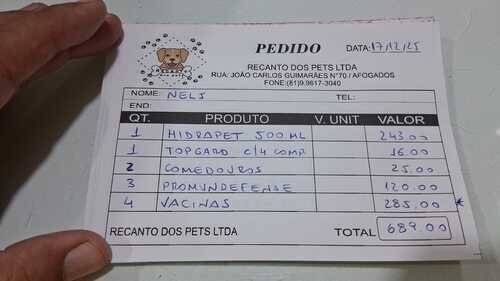 PEDIDO DATA: 17/12/25
RECANTO DOS PETS LTDA
RUA: JOÃO CARLOS GUIMARÃES N°70 / AFOGADOS
FONE:(81)9.9617-3040
NOME: NELS TEL:
END:
QT. PRODUTO V. UNIT VALOR
1 HIDRAPET 500 ML 243.00
1 TOPGARD C/4 COMP 16.00
2 COMEDOUROS 25.00
3 PROMUNDEFENSE 120.00
4 VACINAS 285.00
RECANTO DOS PETS LTDA TOTAL 689.00